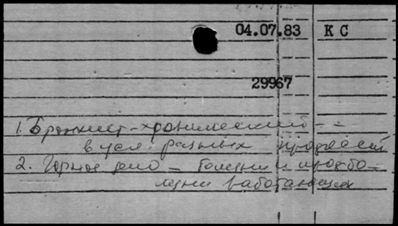 04.07.83 КС
29967
1. Бронхит хронический -
в усл. разных профессий
2. Горное дело - болезни и профбо-
лезни работающих